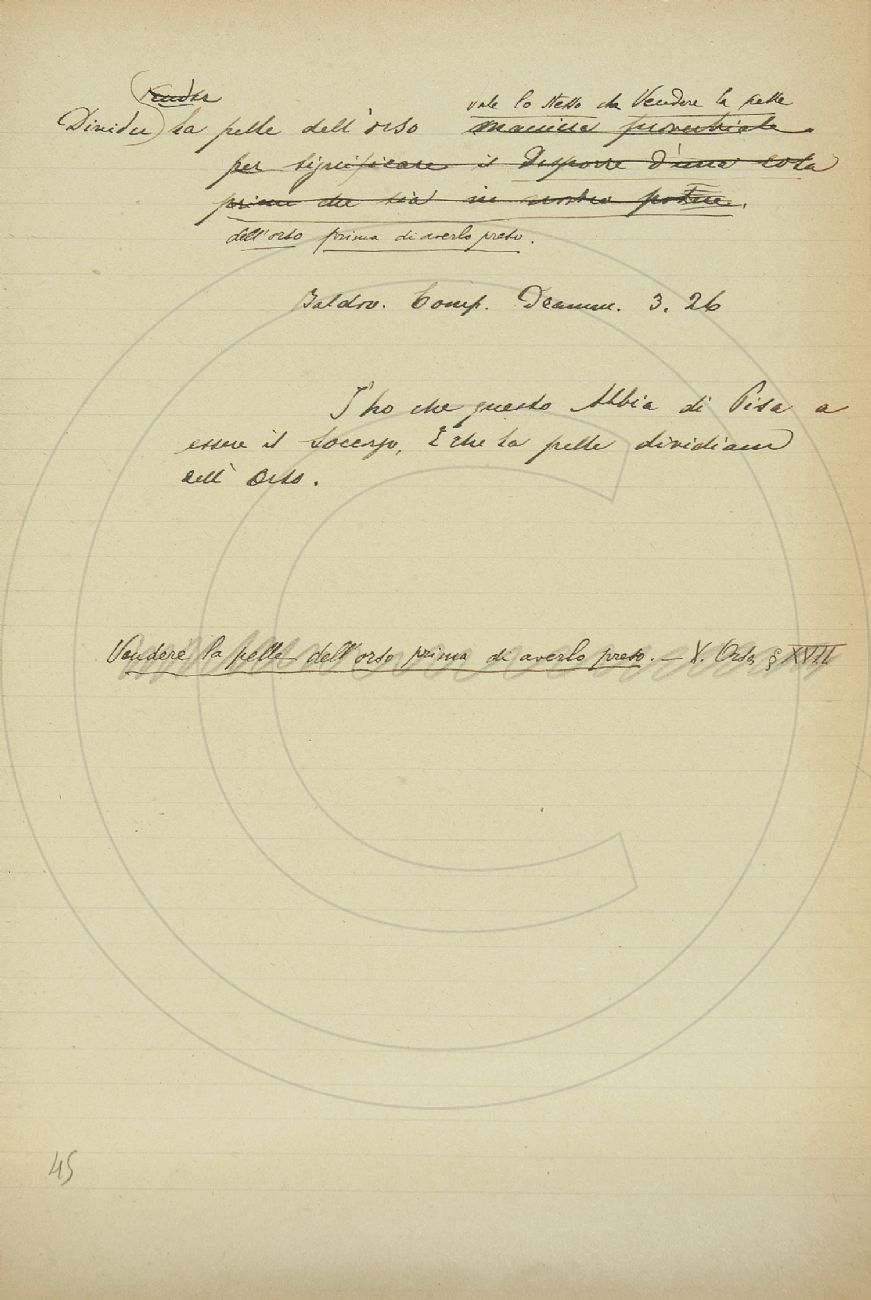 Vendere
vale lo stesso che Vendere la pelle
Divider) la pelle dell'orso maniera proverbiale
per significare il disporre d'una cosa
prima che sia in nostro potere.
dell'orso prima di averlo preso.
Baldov. Comp. Dramm. 3. 26
I' ho che questo abbia di Pisa a
essere il soccorso, E che la pelle dividiam
dell' Orso.
Vendere la pelle dell'orso prima di averlo preso. — V. Orso, § XVII
45